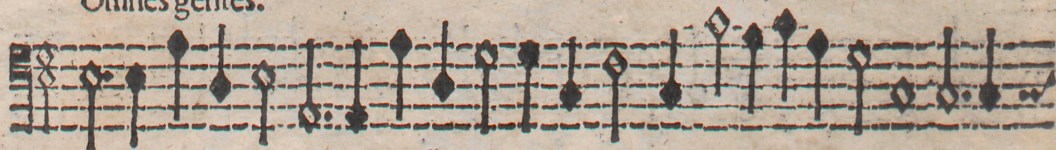 Omnes gentes.